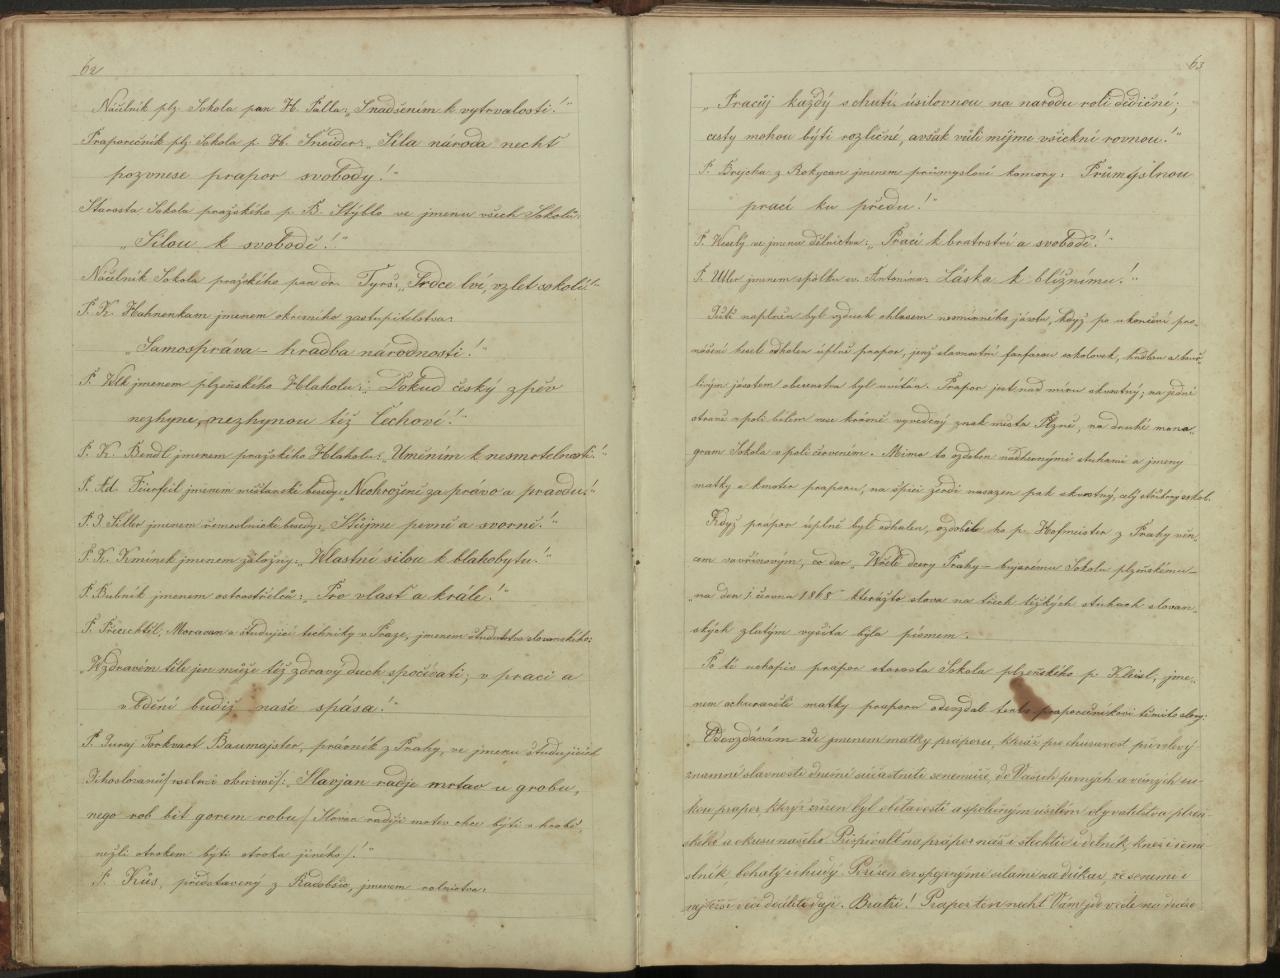 62
Náčelník plz. Sokola pan H. Palla: „S nadšením k vytrvalosti!“
Praporečník plz. Sokola p. H. Šneider: „Síla národa nechť
pozvnese prapor svobody!“
Starosta Sokola pražského p. B. Stýblo ve jmenu všech Sokolů:
„Silou k svobodě!“
Náčelník Sokola pražského pan dr. Tyrš: „Srdce lví, vzlet sokolí!“
P. K. Hahnenkam jmenem okresního zastupitelstva:
„Samospráva – hradba národnosti!“
P. Velk jmenem plzeňského Hlaholu: „Dokud český zpěv
nezhyne, nezhynou též Čechové!“
P. K. Bendl jmenem pražského Hlaholu: „Uměním k nesmrtelnosti!“
P. Ad. jmenem měšťanské besedy: „Neohroženě za právo a pravdu!“
P. J. Siller jmenem řemeslnické besedy: „Stůjme pevně a svorně!“
P. K. Kmínek jmenem záložny: „Vlastní silou k blahobytu!“
P. Bubník jmenem ostrostřelců: „Pro vlasť a krále!“
P. Přecechtěl, Moravan a študující techniky v Praze, jmenem študentstva slovanského:
„V zdravém těle jen může též zdravý duch spočívati; v práci a
v bdění budiž naše spása!“
P. Juraj Torkvart Baumajster, právník z Prahy, ve jmenu študujících
Jihoslovanů /: „Slavjan radje mrtav u grobu,
nego rob bit gorem robu / Slovan raději mrtev chce býti v hrobě,
nežli otrokem býti otroka jiného /!“
P. Kůs, představený z Radobšic, jmenem rolnictva:
63
„Pracůj každý s chutí úsilovnou na národu roli dědičné;
cesty mohou býti rozličné, avšak vůli mějme všickni rovnou!“
P. Brejcha z Rokycan jmenem průmyslové komory: Průmyslnou
prací ku předu!“
P. Veselý ve jmenu dělnictva: „Prací k bratrství a svobodě!“
P. Uller jmenem spolku sv. Antonína: Láska k bližnímu!“
Jistě naplněn byl vzduch ohlasem nesmírného jásotu, když po ukončení pro-
nášení hesel odhalen úplně prapor, jenž slavnostní fanfarou sokolovek, hudbou a bouř-
livým jásotem obecenstva byl uvítán. Prapor jest nad míru skvostný; na jedné
straně v poli bílém vese krásně vyvedený znak města Plzně, na druhé mono-
gram Sokola v poli červeném. Mimo to ozdoben nádhernými stuhami a jmeny
matky a kmoter praporu, na špici žerdi nasazen pak skvostný, celý stříbrný sokol.
Když prapor úplně byl odhalen, ozdobil ho p. Hofmeister z Prahy věn-
cem vavřínovým, co dar „Vřelé dcery Prahy – bujarému Sokolu plzeňskému –
„na den 1. června 1868“ kterážto slova na třech těžkých stuhách slovan-
ských zlatým vyšita byla písmem.
Po té uchopiv prapor starosta Sokola plzeňského p. Kleisl, jme-
nem ochuravělé matky praporu odevzdal tento praporečníkovi těmito slovy:
Odevzdávám zde jmenem matky praporu, kteráž pro churavost převelevý-
znamné slavnosti dnešní súčastniti se nemůže, do Vašich pevných a věrných ru-
kou prapor, kterýž zřízen byl obětavostí a společným úsilím obyvatelstva plzeň-
ského a okresu našeho. Přispívalť na prapor náš i šlechtic i dělník, kněz i řeme-
slník, bohatý i chudý. Zřízen en spojenými silami na důkaz, že jenom i
nejtěžší věci docíliti dají. Bratří! Prapor ten nechť Vám jde v čele na dráze